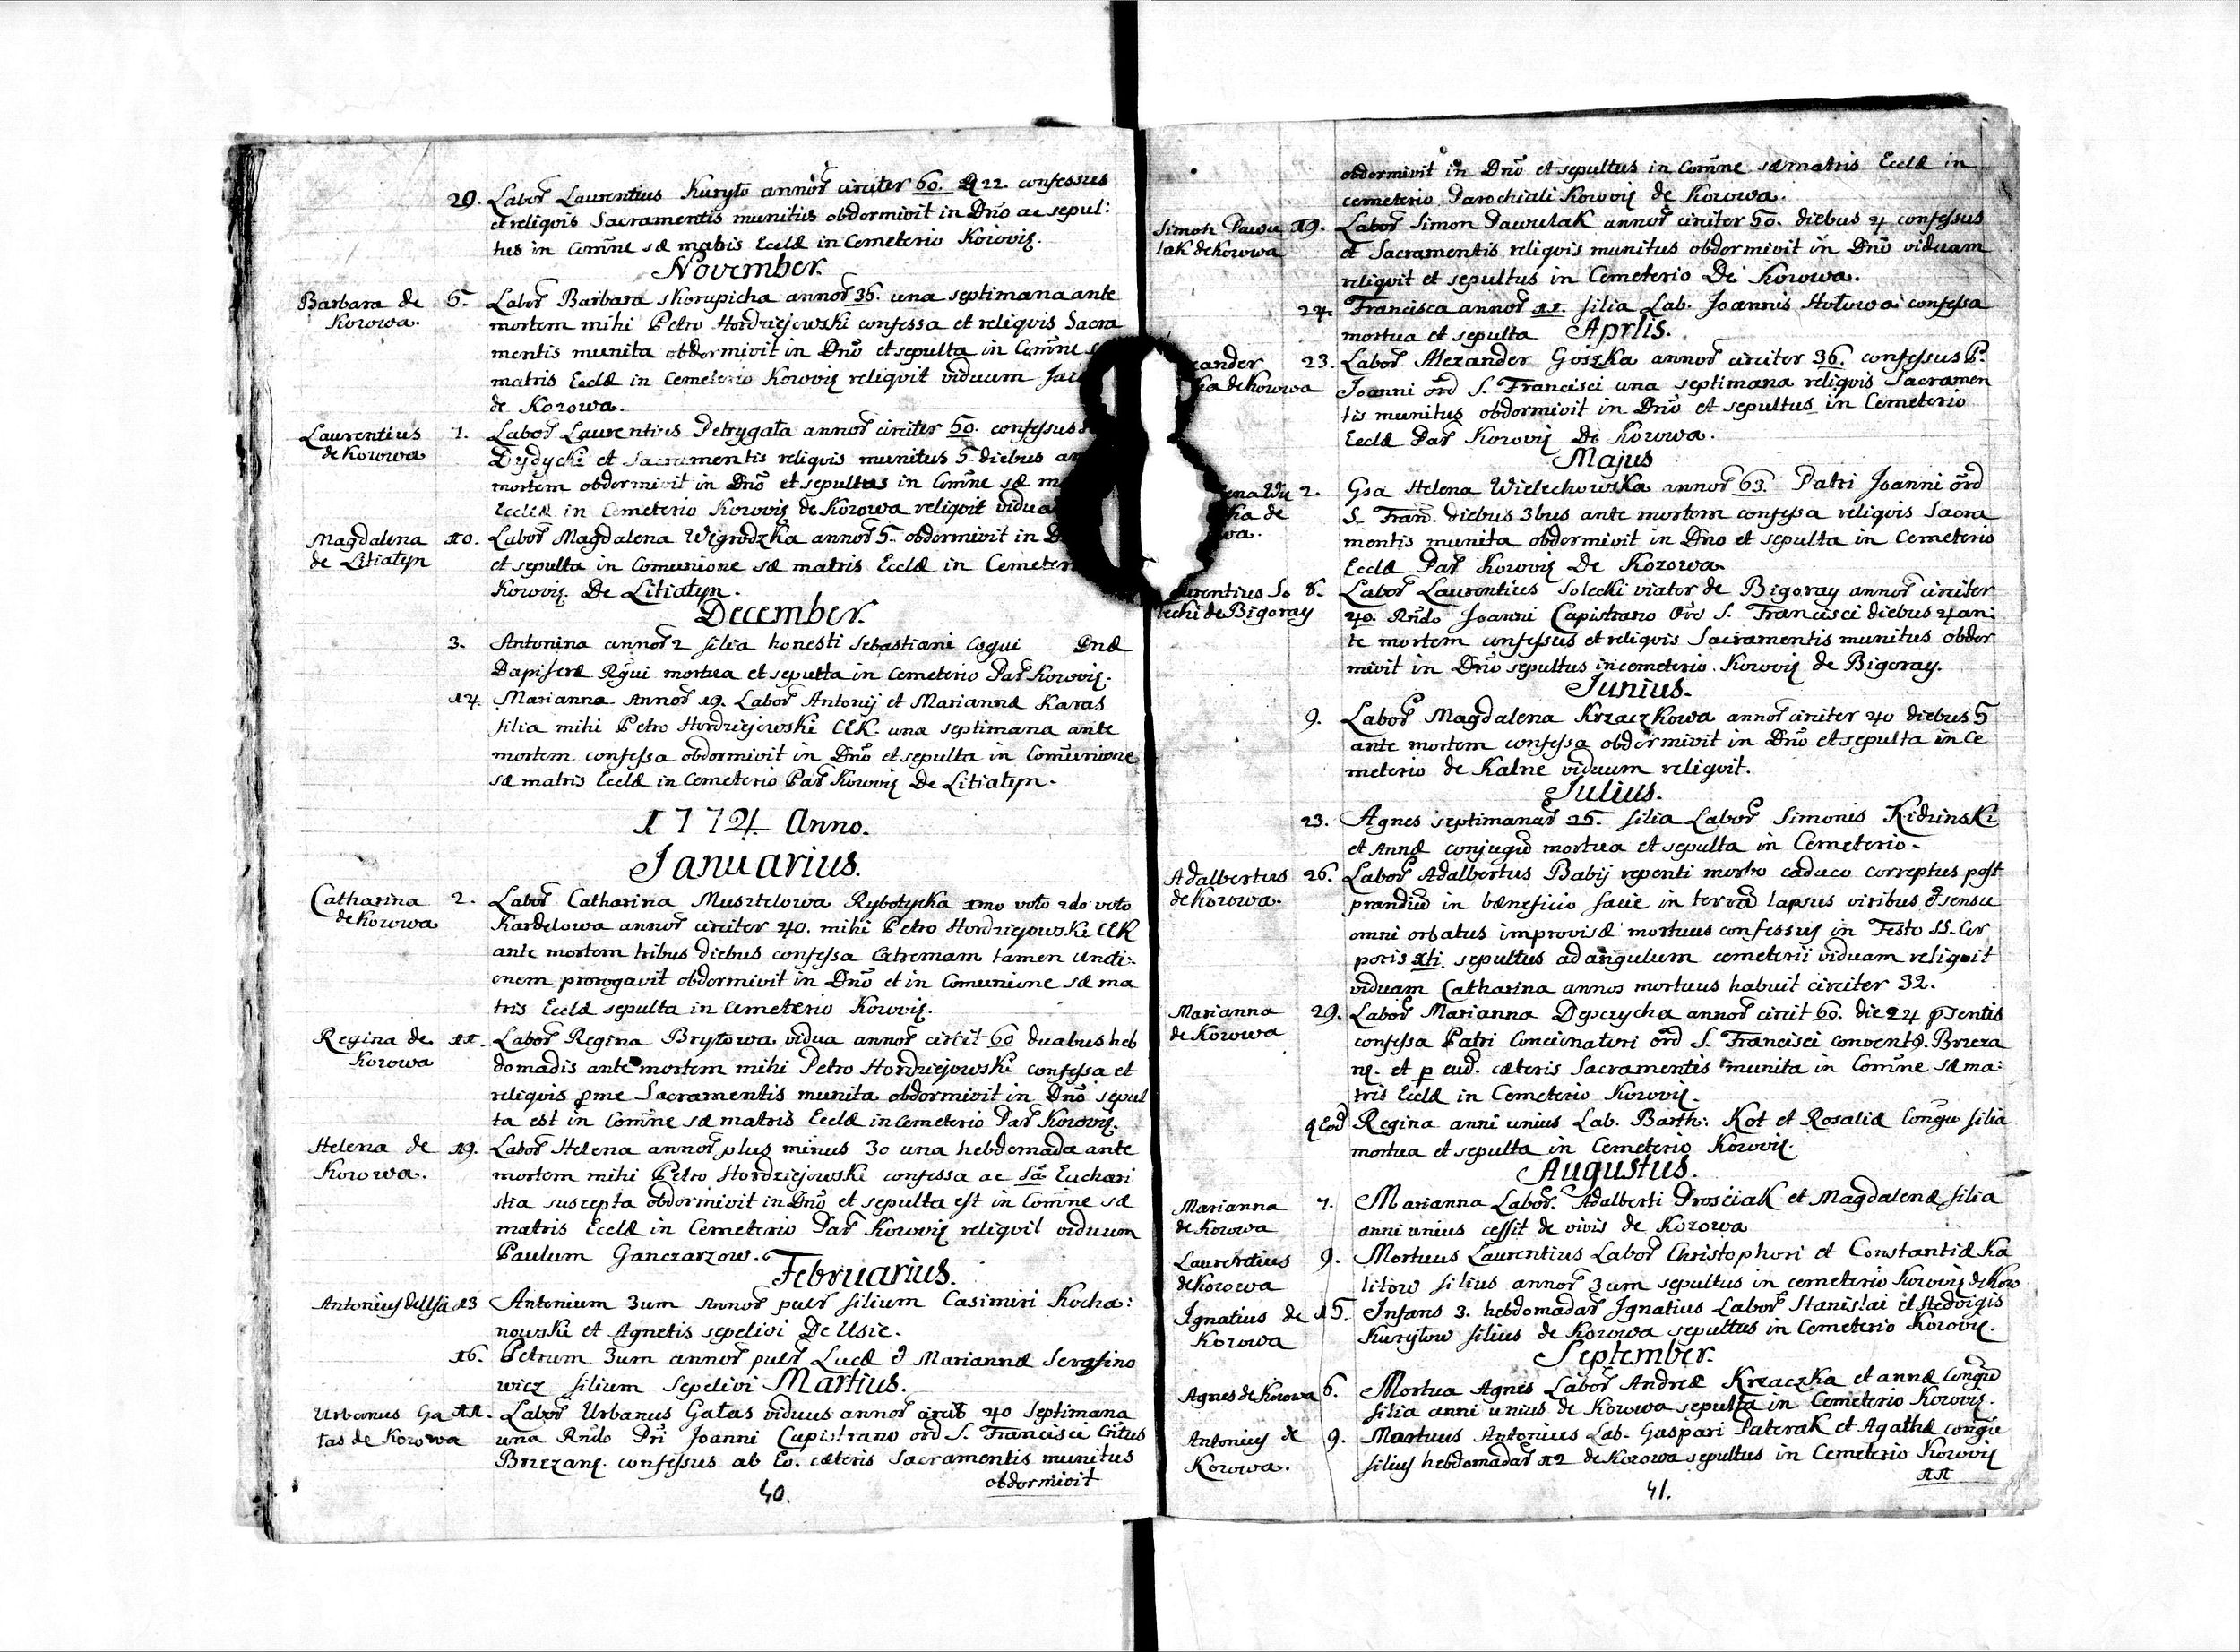 29. Labor Laurentius Kuryło annor circiter 60. 22. confessus
et reliqvis Sacramentis munitus obdormivit in Dno ac sepul:
tus in Comne sæ matris Eccłæ in Cemeterio Kozoviȩ.
November.
Barbara de Kozowa. 5. Labor Barbara skorupicha annor 36. una septimana ante
mortem mihi Petro Hordziejowski confessa et reliqvis Sacra
mentis munita obdormivit in Dno et sepulta in Comne
matris Eccłæ in Cemeterio Kozoviȩ reliqvit viduum
de Kozowa.
Laurentius de Kozowa 7. Labor Laurentius Petrygała annor circiter 50. confessus
Dydycki et Sacramentis reliqvis munitus 5. diebus
mortem obdormivit in Dno et sepultus in Comne sæ
Eccłæ in Cemeterio Kozoviȩ de Kozowa reliqvit
Magdalena de Litiatyn 10. Labor Magdalena Wȩgrodzka annor 5. obdormivit in
et sepulta in Comunione sæ matris Eccłæ in
Kozoviȩ. De Litiatyn.
December.
3. Antonina annor 2 filia honesti Sebastiani Coqui Dnæ
Dapiferæ Rgni mortua et sepulta in Cemeterio Par Kozoviȩ.
14. Marianna Annor 19. Labor Antonij et Mariannæ Karas
filia mihi Petro Hordziejowski CCK. una septimana ante
mortem confessa obdormivit in Dno et sepulta in Comunione
sæ matris Eccłæ in Cemeterio Par Kozoviȩ De Litiatyn.
1774 Anno.
Januarius.
Catharina de Kozowa 2. Labor Catharina Musztelowa Rybotycka 1mo voto 2do voto
Kardelowa annor circiter 40. mihi Petro Hordziejowski CCK
ante mortem tribus diebus confessa Extremam tamen Uncti:
onem prorogavit obdormivit in Dno et in Comunione sæ ma
tris Eccłæ sepulta in Cemeterio Kozoviȩ.
Regina de Kozowa 11. Labor Regina Bryłowa vidua annor circit 60 duabus heb
domadis ante mortem mihi Petro Hordziejowski confessa et
reliqvis pme Sacramentis munita obdormivit in Dno sepul
ta est in Comne sæ matris Eccłæ in Cemeterio Par Kozoviȩ.
Helena de Kozowa. 19. Labor Helena annor plus minus 30 una hebdomada ante
mortem mihi Petro Hordziejowski confessa ac Sa Euchari
stia suscepta obdormivit in Dno et sepulta est in Comne sæ
matris Eccłæ in Cemeterio Par Kozoviȩ reliqvit viduum
Paulum Ganczarzow.
Februarius.
Antonius de Usie 13 Antonium 3um Annor puer filium Casimiri Kocha:
nowski et Agnetis sepelivi De Usie.
16. Petrum 3um annor puer Lucæ & Mariannæ Serafino
wicz filium Sepelivi Martius.
Urbanus Ga 11. Labor Urbanus Gałas viduus annor circit 40 Septimana
łas de Kozowa una Rndo Pri Joanni Capistrano ord S. Francisci Cntus
Brzezanȩ. confessus ab Eo. cæteris Sacramentis munitus
obdormivit
40.
obdormivit in Dno et sepultus in Comne sæ matris Eccłæ in
cemeterio Parochiali Kozoviȩ de Kozowa.
Simon Pawu 19. Labor Simon Pawulak annor circiter 50. diebus 4 confessus
lak de Kozowa et Sacramentis reliqvis munitus obdormivit in Dno viduam
reliqvit et sepultus in Cemeterio De Kozowa.
24. Francisca annor 11. filia Lab. Joannis Hołowa confessa
mortua et sepulta Aprlis.
23. Labor Alexander Goszka annor circiter 36. confessus P.
de Kozowa Joanni ord S. Francisci una septimana reliqvis Sacramen
tis munitus obdormivit in Dno et sepultus in Cemeterio
Eccłæ Par Kozoviȩ De Kozowa.
Majus
2. Gsa Helena Wielechowska annor 63. Patri Joanni ord
S. Fran. diebus 3bus ante mortem confessa reliqvis Sacra
mentis munita obdormivit in Dno et sepulta in Cemeterio
Eccłæ Par Kozoviȩ De Kozowa.
So 8. Labor Laurentius Solecki viator de Bigoray annor circiter
lecki de Bigoray 40. Rndo Joanni Capistrano Ord S. Francisci diebus 4 an:
te mortem confessus et reliqvis Sacramentis munitus obdor
mivit in Dno sepultus in cemeterio Kozoviȩ de Bigoray.
Junius.
9. Labor Magdalena Krzaczkowa annor circiter 40 diebus 5
ante mortem confessa obdormivit in Dno et sepulta in Ce
meterio de Kalne viduum reliqvit.
Julius.
23. Agnes septimanar 25. filia Labor Simonis Kidzinski
et Annæ conjugu mortua et sepulta in Cemeterio.
Adalbertus 26. Labor Adalbertus Babij repenti morbo caduco correptus post
de Kozowa. prandiu in bæneficio facie in terra lapsus viribus & sensu
omni orbatus improvisæ mortuus confessus in Festo SS. Cor
poris Xti. sepultus ad angulum cemeterii viduam reliqvit
viduam Catharina annos mortuus habuit circiter 32.
Marianna 29. Labor Marianna Depczycha annor circit 60. die 24 psentis
de Kozowa confessa Patri Concionatori ord S. Francisci convent9. Brzeza
nȩ. et p eud. cæteris Sacramentis munita in Comne sæ ma:
tris Eccłæ in Cemeterio Kozoviȩ.
qEod Regina anni unius Lab. Barth: Kot et Rosaliæ Congu filia
mortua et sepulta in Cemeterio Kozoviȩ.
Augustus.
Marianna 7. Marianna Labor. Adalberti Drosciak et Magdalenæ filia
de Kozowa anni unius cessit de vivis de Kozowa
Laurentius 9. Mortuus Laurentius Labor Christophori et Constantiæ Ka
de Kozowa litow filius annor 3um sepultus in cemeterio Kozoviȩ de Kozo
Ignatius de 15. Infans 3. hebdomadar Ignatius Labor Stanislai et Hedvigis
Kozowa Kuryłow filius de Kozowa sepultus in Cemeterio Kozoviȩ.
September.
Agnes de Kozowa 6. Mortua Agnes Labor Andreæ Krzaczka et annæ Congu
filia anni unius de Kozowa sepulta in Cemeterio Kozoviȩ.
Antonius de 9. Mortuus Antonius Lab. Gaspari Paterak et Agathæ congu
Kozowa. filius hebdomadar 12 de Kozowa sepultus in Cemeterio Kozoviȩ
11
41.